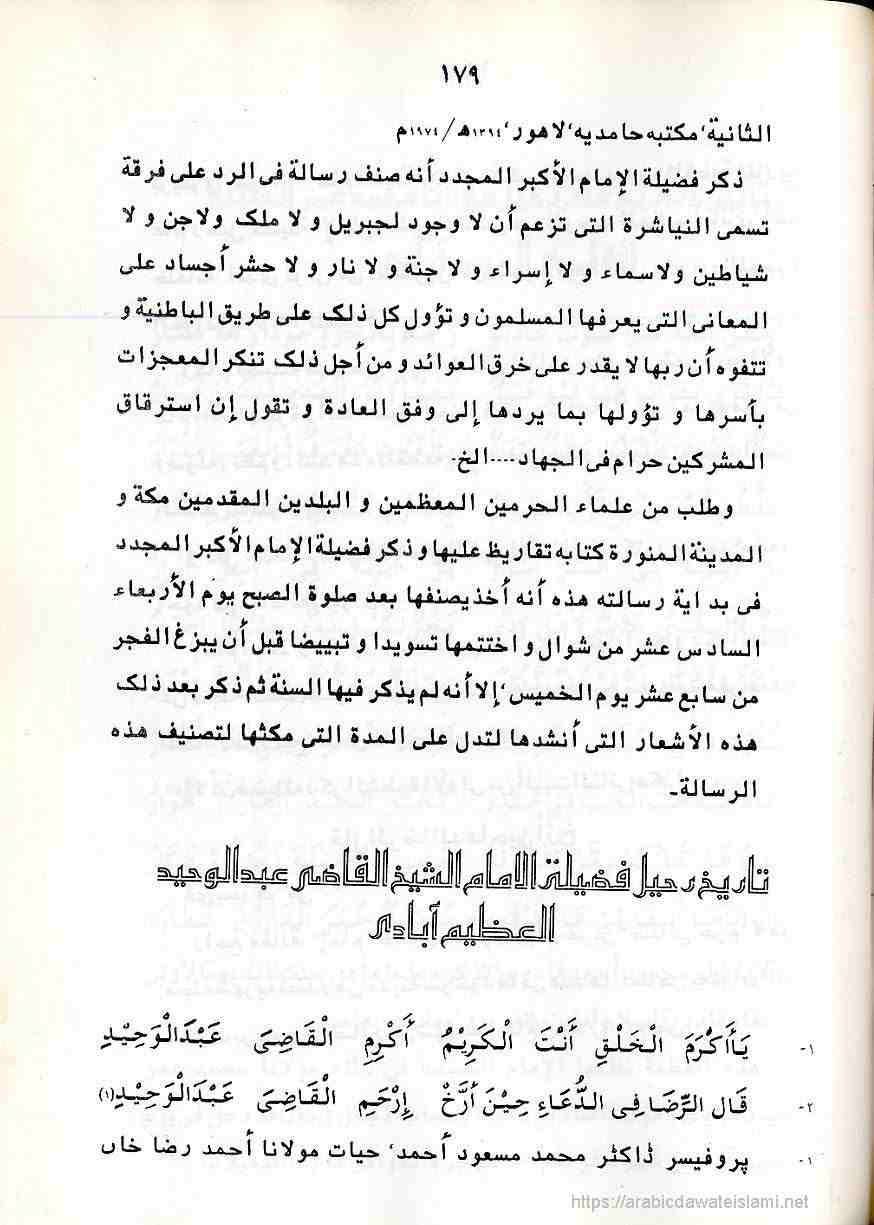 ١٧٩
الثانية، مكتبه حامديه، لاهور، ١٣٩٤ھ/١٩٧٤م
ذكر فضيلة الإمام الأكبر المجدد أنه صنف رسالة فى الرد على فرقة
تسمى النياشرة التى تزعم أن لا وجود لجبريل و لا ملک ولاجن و لا
شياطين ولاسماء و لا إسراء و لا جنة و لا نار و لا حشر أجساد على
المعانى التى يعرفها المسلمون و تؤول كل ذلک على طريق الباطنية و
تتفوه أن ربها لا يقدر على خرق العوائد و من أجل ذلک تنكر المعجزات
بأسرها و تؤولها بما يردها إلى وفق العادة و تقول إن استرقاق
المشركين حرام فى الجهاد....الخ۔
وطلب من علماء الحرمين المعظمين و البلدين المقدمين مكة و
المدينة المنورة كتابه تقاريظ عليها و ذكر فضيلة الإمام الأكبر المجدد
فى بداية رسالته هذه أنه أخذ يصنفها بعد صلوة الصبح يوم الأربعاء
السادس عشر من شوال و اختتمها تسويدا و تبييضا قبل أن يبزغ الفجر
من سابع عشر يوم الخميس، إلا أنه لم يذكر فيها السنة ثم ذكر بعد ذلک
هذه الأشعار التى أنشدها لتدل على المدة التى مكثها لتصنيف هذه
الرسالة۔
تاريخ رحيل فضيلة الامام الشيخ القاضى عبدالوحيد
العظيم آبادى
١- يَاأَكْرَمَ الْخَلْقِ أَنْتَ الْكَرِيْمُ أَكْرِمِ الْقَاضِىَ عَبْدَالْوَحِيْدِ
٢- قَال الرِّضَا فِى الدُّعَاءِ حِيْنَ أَرَّخَ إِرْحَمِ الْقَاضِىَ عَبْدَالْوَحِيْدِ(١)
١- پروفيسر ڈاکٹر محمد مسعود أحمد، حيات مولانا أحمد رضا خاں
https://arabicdawateislami.net